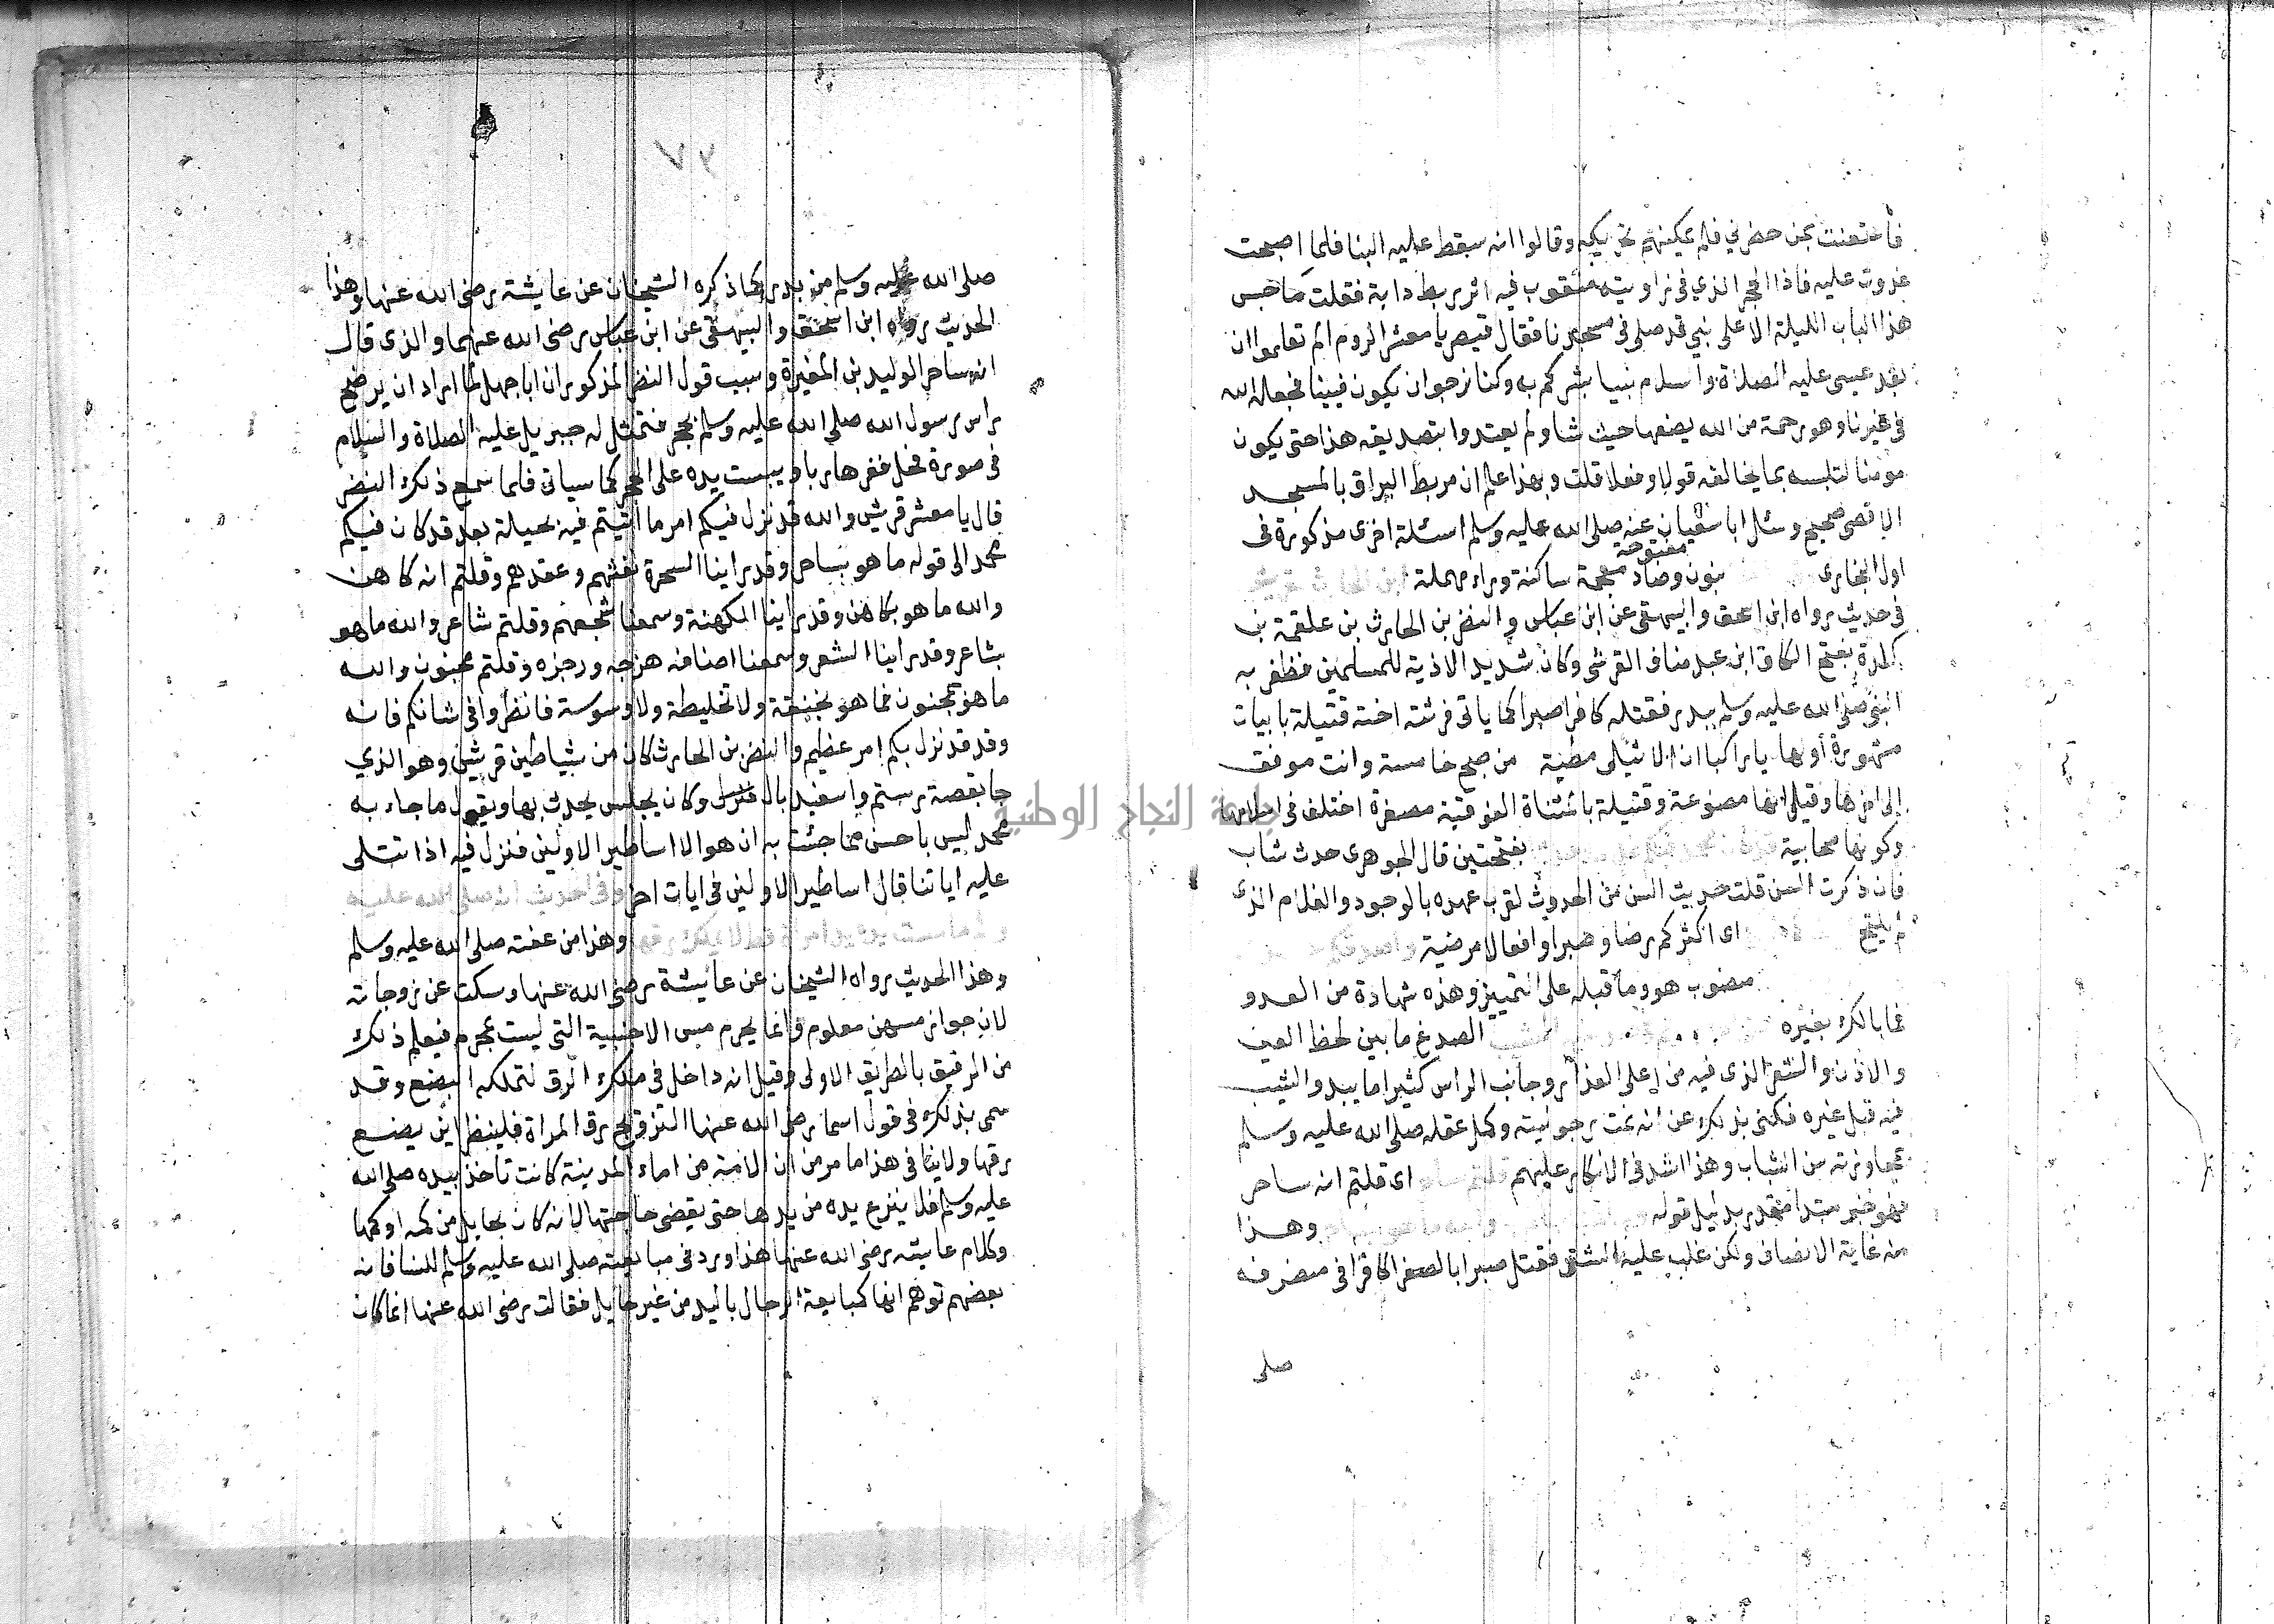 فاستعنت بمن حضرني فلم يمكنهم تحريكه وقالوا انه سقط عليه البنا فلما اصبحت
غدوت عليه فاذا الحجر الذي في زاويته مثقوب فيه اثر ربط دابة فقلت ما حبس
هذا الباب الليلة الا على نبي قد صلى في مسجدنا فقال قيصر يا معشر الروم الم تعلموا ان
بعد عيسى عليه الصلاة والسلام نبيا بشركم به وكنا نرجوا ان يكون فينا فجعله الله
في غيرنا وهو رحمة من الله يضعها حيث شا ولم يعتدوا بتصديقه هذا حتى يكون
مومنا لتلبسه بما يخالفه قولا وفعلا قلت وبهذا علم ان مربط البراق بالمسجد
الاقصى صحيح وسئل ابا سفيان عنه صلى الله عليه وسلم اسئلة اخرى مذكورة في
اول البخارى بنون مفتوحة وضاد معجمة ساكنة وراء مهملة
في حديث رواه ابن اسحق والبيهقى عن ابن عباس والنضر بن الحارث بن علقمة بن
كلدة بفتح الكاف ابن عبد مناف القرشى وكان شديد الاذية للمسلمين فظفر به
النبي صلى الله عليه وسلم ببدر فقتله كافرا صبرا كما ياتى فرثته اخته قتيلة بابيات
مشهورة أولها يا راكبا ان الاثيل مظنة من صبح خامسة وانت موفق
إلى اخرها وقيل انها مصنوعة وقتيلة بالمثناة الفوقية مصغرة اختلف في اسلامها
وكونها صحابية بفتحتين قال الجوهرى حدث شاب
فان ذكرت السن قلت حديث السن من الحدوث لقرب عهده بالوجود والغلام الذى
لم يلتح اى اكثركم رضا وصبرا وافعالا مرضية
منصوب هو وما قبله على التمييز وهذه شهادة من العدو
فما بالك بغيره الصدغ ما بين لحظ العين
والاذن والشعر الذى فيه من اعلى العذار وجانب الراس كثيرا ما يبدو الشيب
فيه قبل غيره فكنى بذلك عن انه تمت رجوليته وكمل عقله صلى الله عليه وسلم
بمجاوزته سن الشباب وهذا اشد في الانكار عليهم اى قلتم انه ساحر
فهو خبر مبتدا مقدر بدليل قوله وهذا
منه غاية الانصاف ولكن غلب عليه الشقى فقتل صبرا بالصفرا كافرا في منصرفه
صلى
صلى الله عليه وسلم من بدر كما ذكره الشيخان عن عايشة رضى الله عنها وهذا
الحديث رواه ابن اسحق والبيهقى عن ابن عباس رضى الله عنهما والذى قال
انه ساحر الوليد بن المغيرة وسبب قول النضر المذكور ان ابا جهل لما اراد ان يرضخ
راس رسول الله صلى الله عليه وسلم بحجر فتمثل له جبريل عليه الصلاة والسلام
في صورة فحل ففر هاربا ويبست يده على الحجر كما سياتى فلما سمع ذلك النضر
قال يا معشر قريش والله قد نزل فيكم امر ما اتيتم فيه بحيلة بعد قد كان فيكم
محمد الى قوله ما هو بساحر وقد راينا السحرة نفثهم وعقدهم وقلتم انه كاهن
والله ما هو بكاهن وقد راينا الكهنة وسمعنا سجعهم وقلتم شاعر والله ما هو
بشاعر وقد راينا الشعر وسمعنا اصنافه هزجه ورجزه وقلتم مجنون والله
ما هو بمجنون فما هو بخنقة ولا تخليطة ولا وسوسة فانظروا في شانكم فانه
وقد قد نزل بكم امر عظيم والنضر بن الحارث كان من شياطين قريش وهو الذي
جا بقصة رستم واسفنديال وكان يجلس يحدث بها ويقول ما جاء به
محمد ليس باحسن مما جئت به ان هو الا اساطير الاولين فنزل فيه اذا تتلى
عليه اياتنا قال اساطير الاولين في ايات اخر وفي الحديث انه صلى الله عليه
ما مست يده يد امراة قط لا يملك رقها وهذا من عفته صلى الله عليه وسلم
وهذا الحديث رواه الشيخان عن عائيشة رضى الله عنها وسكت عن زوجاته
لان جواز مسهن معلوم وانما يحرم مس الاجنبية التى ليست بمحرم فيعلم ذلك
من الرقيق بالطريق الاولى وقيل انه داخل في ملك الرق لتملكه البضع وقد
سمى بذلك في قول اسما رضى الله عنها التزويج رق المراة فلينظر اين يضع
رقها ولا ينافي هذا ما مر من ان الامة من اماء المدينة كانت تاخذ بيده صلى الله
عليه وسلم فلا ينزع يده من يدها حتى يقضى حاجتها لانه كان بحايل من كمه او كمها
وكلام عايشه رضى الله عنها هذا ورد في مبايعته صلى الله عليه وسلم للنسا فانه
بعضهم توهم انها كمبايعة الرجال باليد من غير حايل فقالت رضى الله عنها انما كان
جامعة النجاح الوطنية